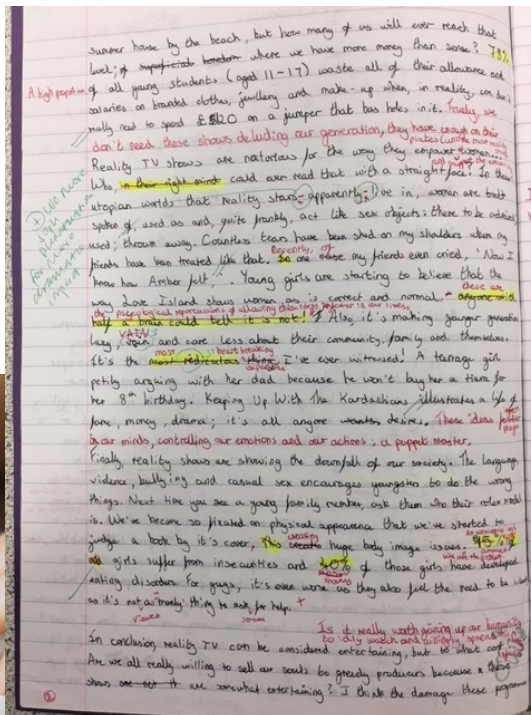 summer house by the beach, but how many of us will ever reach that
level; of superficial boredom where we have more money than sense? 78%
A high proportion of all young students (aged 11-17) waste all of their allowance and
salaries on branded clothes, jewellery and make-up when, in reality, we don't
really need to spend £520 on a jumper that has holes in it. Truely, we
don't need these shows deluding our generation, they have enough on their
plates
Reality TV shows are notorious for the way they empower women...
Who, in their right mind could ever read that with a straight face? In these
utopian worlds that reality stars - apparently - live in, women are
spoken of, used as and, quite frankly, act like sex objects: there to be admired,
used; thrown away. Countless tears have been shed on my shoulders where my
friends have been treated like that. Recently, of
In one case my friends even cried, 'Now I
know how Amber felt,'. Young girls are starting to believe that the
way Love Island shows women as is correct and normal, - these are
anyone with
the psychological repercussions of allowing this in our lives.
half a brain could tell it is not! Also, it's making younger generations
VAIN
lazy, vain and care less about their community, family and themselves.
most heart breaking
It's the most rediculous thing I've ever witnessed! A teenage girl
experience
petily arguing with her dad because he won't buy her a tiara for
her 8th birthday. Keeping Up With The Kardashians illustrates a life of
fame, money, drama; it's all anyone wants desires. These ideas
in our minds, controlling our emotions and our actions: a puppet master.
Finally, reality shows are showing the downfall of our society. The language,
violence, bullying and casual sex encourages youngsters to do the wrong
things. Next time you see a young family member, ask them who their role model
is. We've become so fixated on physical appearance that we've started to
judge a book by it's cover, This creates creating huge body image issues. 95%
girls suffer from insecurities and 40% of those girls have developed
many
eating disorders. For guys, it's even worse as they also feel the need to be
as it's not a 'manly' thing to ask for help.
viewed
Is it really worth giving up our humanity
to idly watch and
In conclusion, reality TV can be considered entertaining, but to what cost?
Are we all really willing to sell our souls to greedy producers because these
shows are not it are somewhat entertaining? I think the damage these programmes